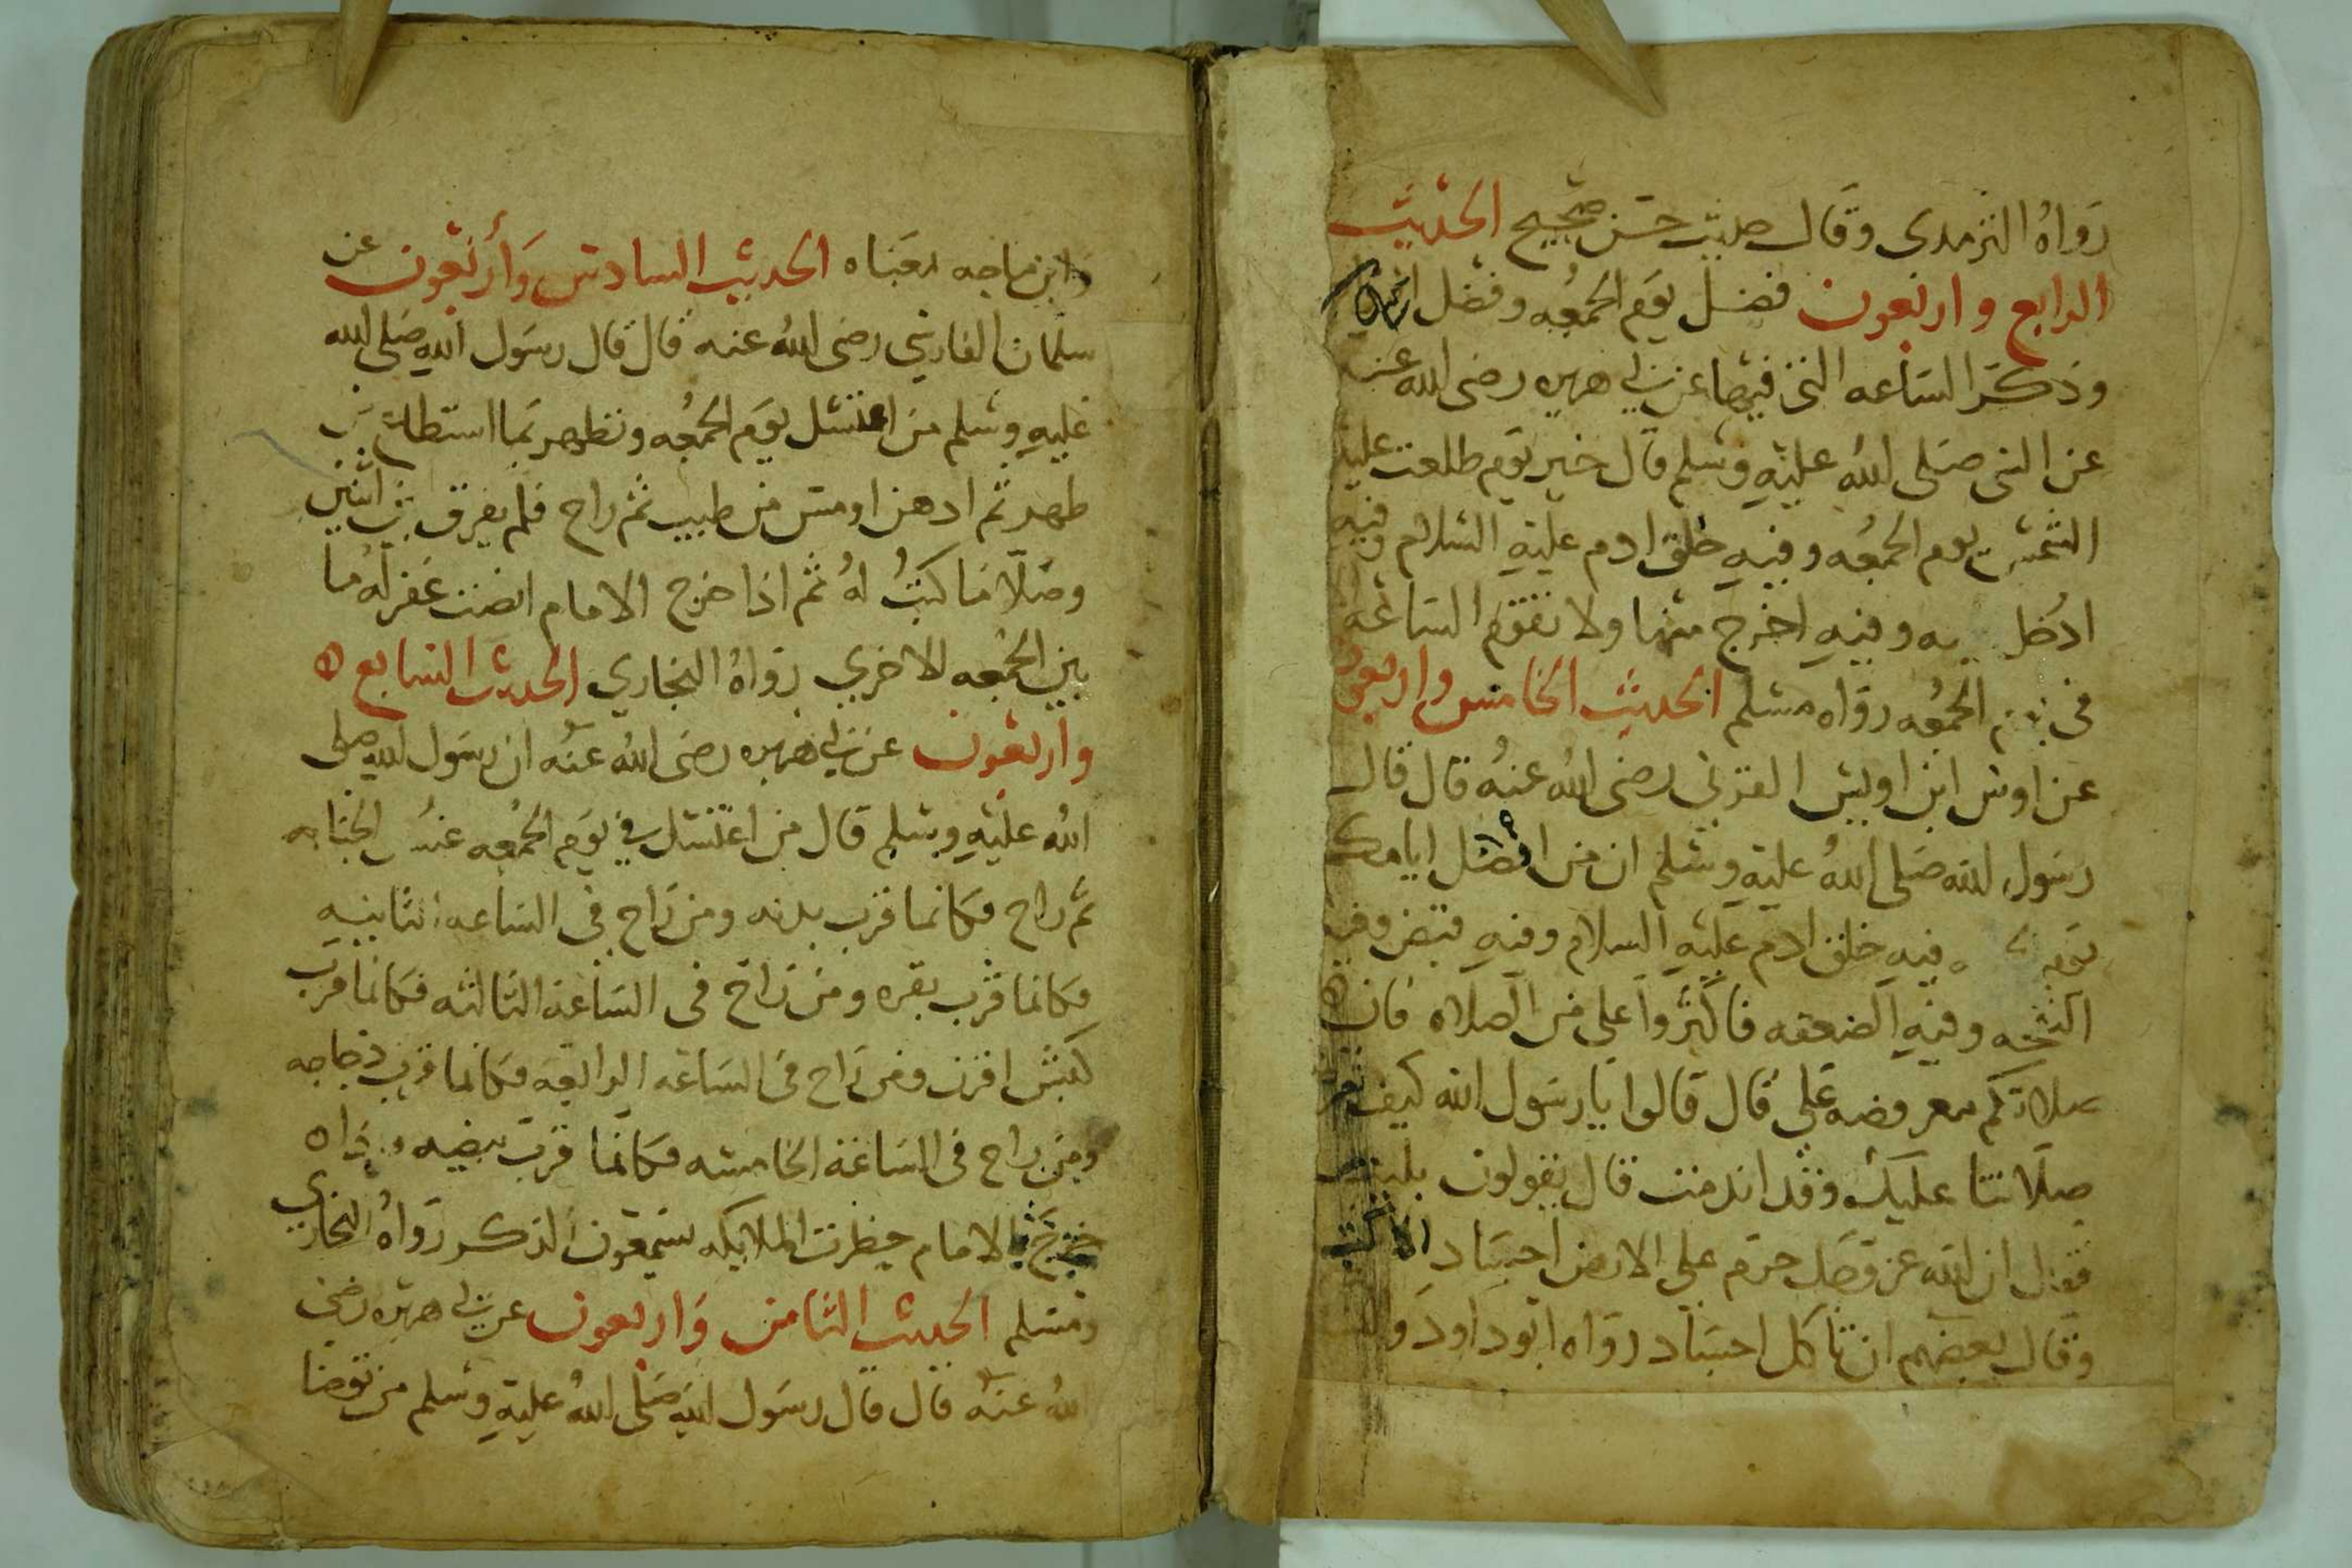 رواه الترمدى وقال حديث حسن صحيح الحديث
الرابع واربعون فضل يوم الجمعه وفضل
وذكر الساعه التى فيها عن ابي هريره رضى الله عنه
عن النبى صلى الله عليه وسلم قال خير يوم طلعت عليه
الشمس يوم الجمعه وفيه خلق ادم عليه السلام وفيه
ادخل وفيه اخرج منها ولا تقوم الساعه
فى الجمعه رواه مسلم الحديث الخامس واربعون
عن اوس ابن اويس القرنى رضى الله عنه قال قال
رسول الله صلى الله عليه وسلم ان من افضل ايامكم
يوم فيه خلق ادم عليه السلام وفيه قبض وفيه
النفخه وفيه الصعقه فاكثروا على من الصلاه فان
صلاتكم معروضه على قال قالوا يا رسول الله كيف تعرض
صلاتنا عليك وقد ارمت قال يقولون بليت
فقال ان الله عز وجل حرم على الارض اجساد
وقال بعضهم ان تاكل اجساد رواه ابو داود و
وابن ماجه معناه الحديث السادس وأربعون عن
سلمان الفارسي رضى الله عنه قال قال رسول الله صلى الله
عليه وسلم من اغتسل يوم الجمعه وتطهر بما استطاع من
طهر ثم ادهن او مس من طيب ثم راح فلم يفرق بين اثنين
وصلا ما كتب له ثم اذا خرج الامام انصت غفر له ما
بين الجمعه للاخري رواه البخاري الحديث السابع
واربعون عن ابي هريره رضى الله عنه ان رسول الله صلى
الله عليه وسلم قال من اغتسل في يوم الجمعه غسل الجنابه
ثم راح فكانما قرب بدنه ومن راح في الساعه الثانيه
فكانما قرب بقره ومن راح فى الساعه الثالثه فكانما قرب
كبش اقرن ومن راح فى الساعه الرابعه فكانما قرب دجاجه
ومن راح فى الساعه الخامسه فكانما قرب بيضه
خرج الامام حظرت الملايكه يستمعون الذكر رواه البخاري
ومسلم الحديث الثامن واربعون عن ابي هريره رضى
الله عنه قال قال رسول الله صلى الله عليه وسلم من توضا